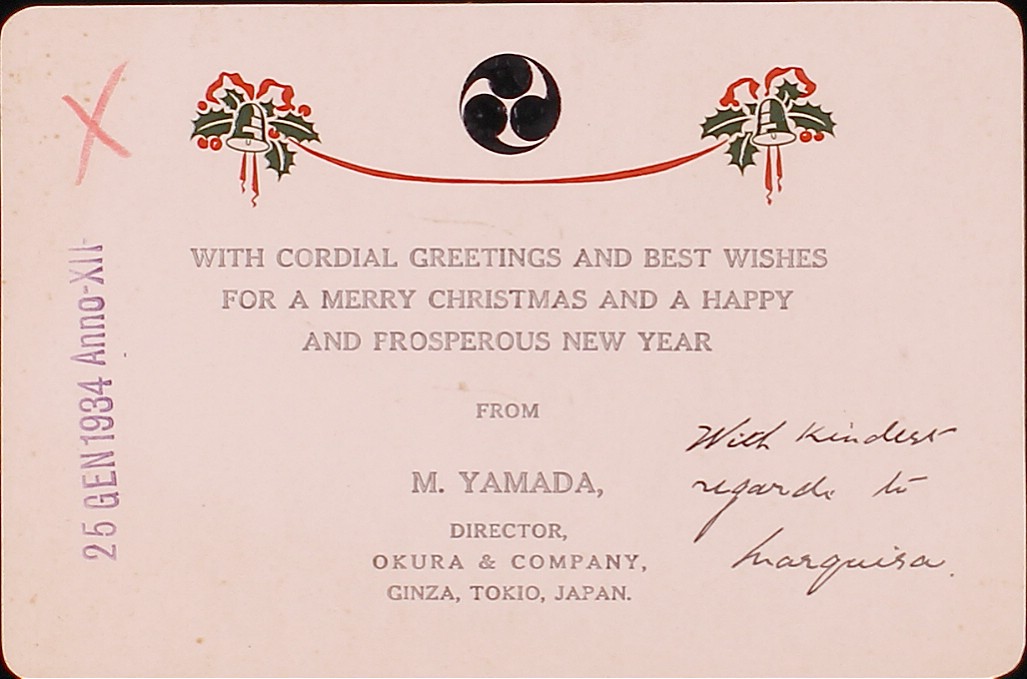 WITH CORDIAL GREETINGS AND BEST WISHES
FOR A MERRY CHRISTMAS AND A HAPPY
AND PROSPEROUS NEW YEAR
FROM
M. YAMADA,
DIRECTOR,
OKURA & COMPANY,
GINZA, TOKIO, JAPAN.
With kindest
regards to
Marquisa.
25 GEN 1934 Anno-XII-